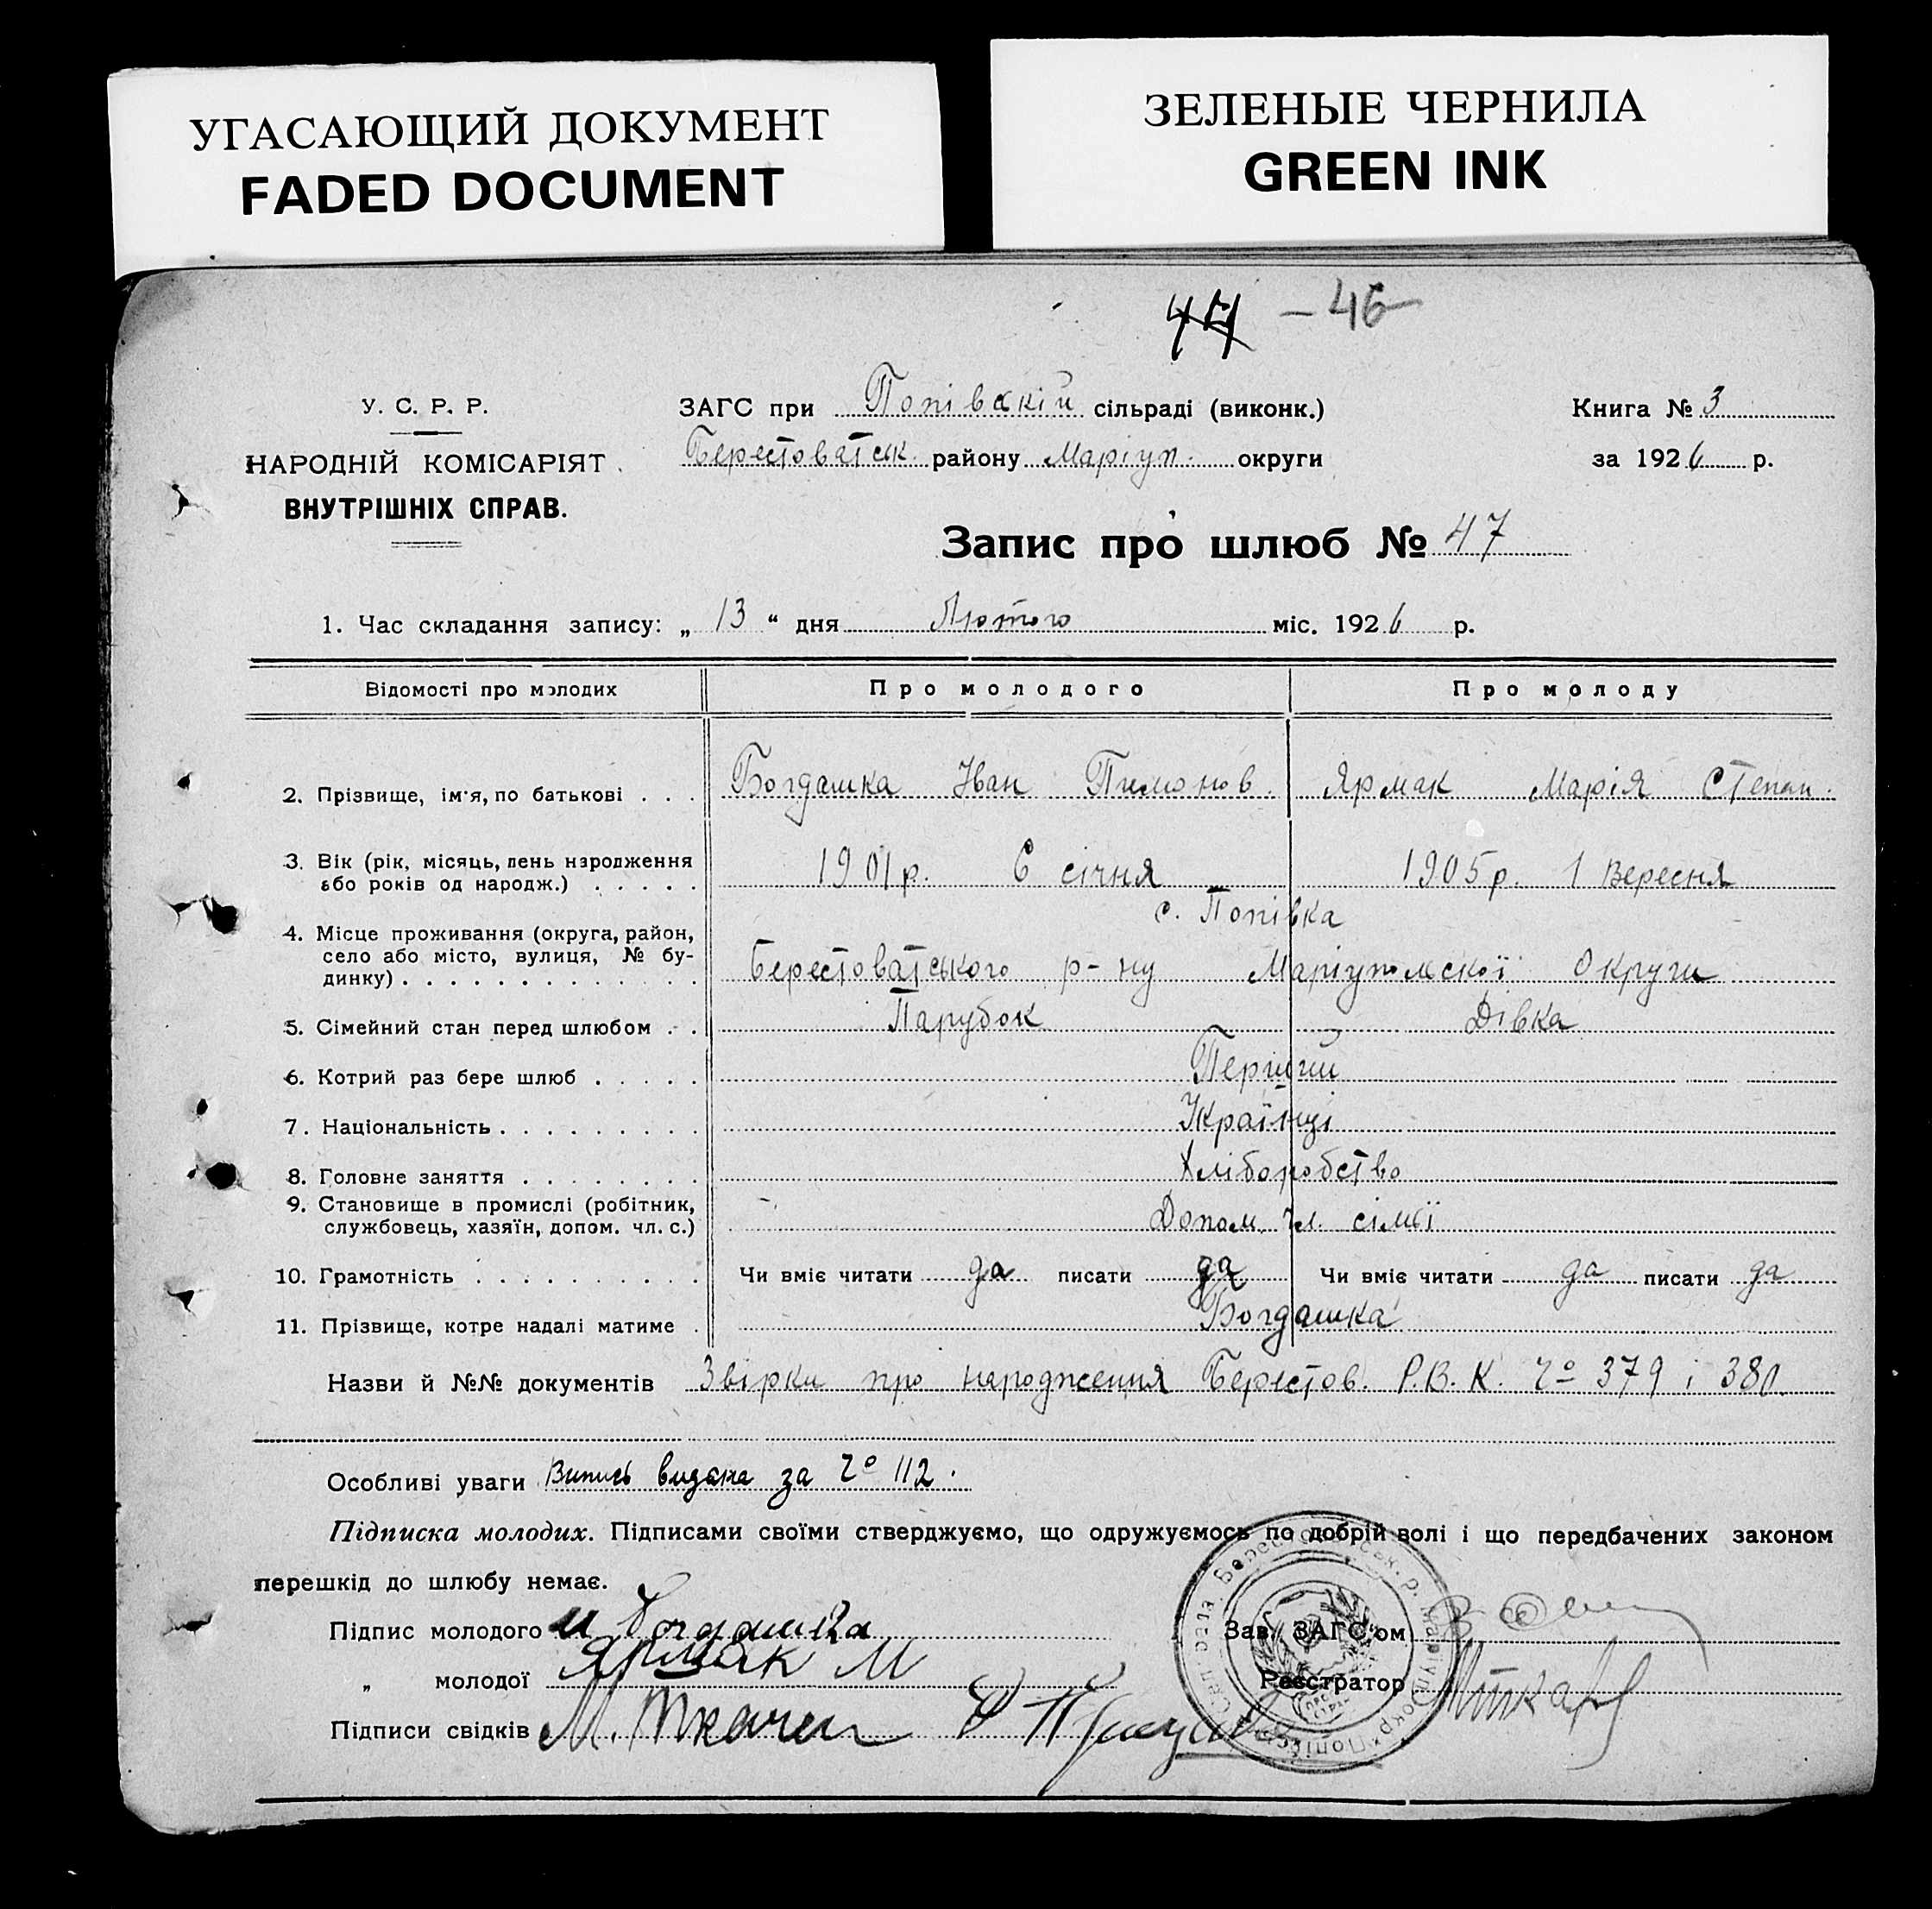 УГАСАЮЩИЙ ДОКУМЕНТ
FADED DOCUMENT
ЗЕЛЕНЫЕ ЧЕРНИЛА
GREEN INK
47 — 46
У. С. Р. Р.
НАРОДНІЙ КОМІСАРІЯТ
ВНУТРІШНІХ СПРАВ.
ЗАГС при Попівскій сільраді (виконк.)
Берестоватськ. району Маріуп. округи
Книга № 3
за 1926 р.
Запис про шлюб № 47
1. Час складання запису: „ 13 “ дня Лютого міс. 1926 р.
Відомості про молодих Про молодого Про молоду
2. Прізвище, ім'я, по батькові . . . Богдашка Іван Пимонов. Ярмак Марія Степан.
3. Вік (рік, місяць, день народження 1901 р. 6 січня 1905 р. 1 Вересня
або років од народж.) . . . . .
с. Попівка
4. Місце проживання (округа, район,
село або місто, вулиця, № бу- Берестоватського р-ну Маріупольскої Округи
динку) . . . . . . . . . . . . .
5. Сімейний стан перед шлюбом . . Парубок Дівка
6. Котрий раз бере шлюб . . . . . Перший
7. Національність . . . . . . . . . Українці
8. Головне заняття . . . . . . . . Хліборобство
9. Становище в промислі (робітник,
службовець, хазяїн, допом. чл. с.) Допом. чл. сімї
10. Грамотність . . . . . . . . . . Чи вміє читати да писати да Чи вміє читати да писати да
11. Прізвище, котре надалі матиме . Богдашка
Назви й №№ документів Звірки про народження Берестов. Р.В.К. Чº 379 і 380.
Особливі уваги Випись видана за Чº 112.
Підписка молодих. Підписами своїми стверджуємо, що одружуємось по добрій волі і що передбачених законом
перешкід до шлюбу немає.
Підпис молодого И Богдашка
Зав. ЗАГС'ом
„ молодої Ярмак М
Реєстратор
Підписи свідків М. Ткачен